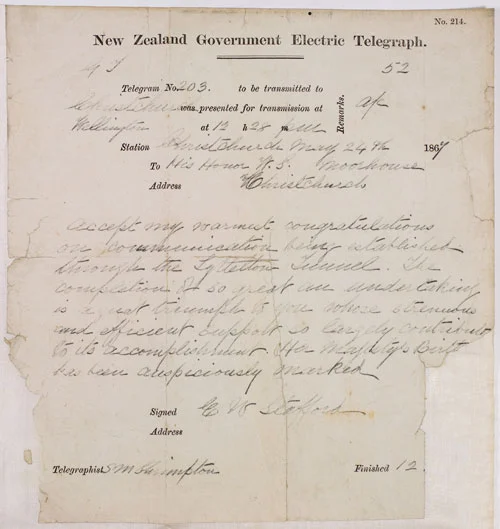 No. 214.
New Zealand Government Electric Telegraph.
52
Telegram No. 203. to be transmitted to
Christchurch was presented for transmission at
Wellington at 12 h 28 m pm
Remarks.
Station Christchurch May 24th 1867
To His Honor W. S. Moorhouse
Address Christchurch
Accept my warmest congratulations
on communication being established
through the Lyttelton Tunnel. The
completion of so great an undertaking
is a great triumph to you whose strenuous
and efficient support so largely contribut
to its accomplishment Her Majesty's Birth
has been auspiciously marked
Signed E W Stafford
Address
Telegraphist Shrimpton Finished 12.